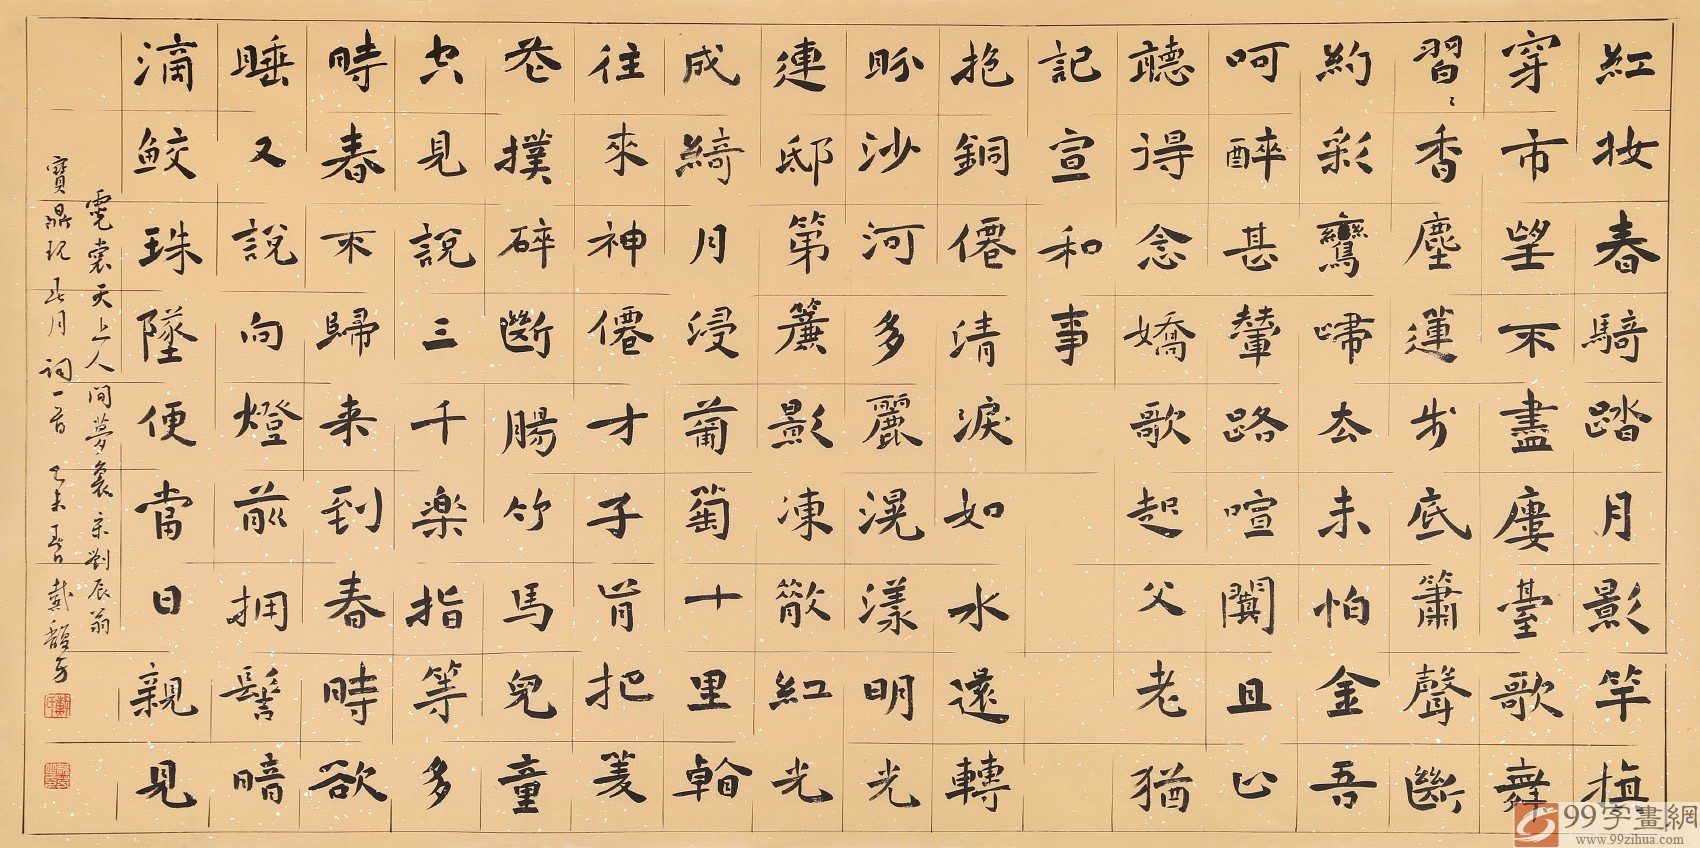 紅妝春騎踏月影竿旗
穿市望不盡廔臺歌舞
習〻香塵蓮步底簫聲斷
約彩鸞歸去未怕金吾
呵醉甚輦路喧闐且止
聽得念嬌歌起父老猶
記宣和事
抱銅僊清淚如水還轉
盼沙河多麗滉漾明光
連邸第簾影凍散紅光
成綺月浸葡萄十里看
往來神僊才子肯把菱
花撲碎斷腸竹馬兒童
空見說三千樂指等多
時春不歸来到春時欲
睡又說向燈前擁髻暗
滴鮫珠墜便當日親見
霓裳天上人間夢裏 宋劉辰翁
寶鼎現 正月 詞一首 乙未春日 戴馥芳
99字畫網
www.99zihua.com